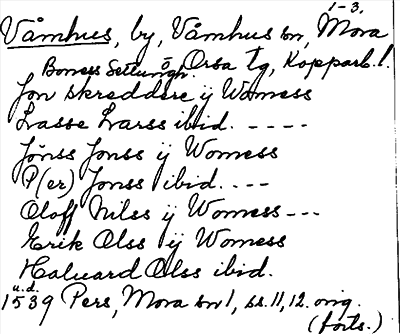 1-3.
Våmhus, by, Våmhus sn, Mora
o. Orsa tg, Kopparb. l.
Jon skreddere ij Womess
Lasse Larss ibid. - - - -
Jönss Jonss ij Womess
P(er) Jonss ibid. - - -
Oloff Nilss ij Womess - - -
Erik Olss ij Womess
Haluard Olss ibid.
u.d.
1539 Pers, Mora sn 1, ss. 11, 12. orig.
(forts.)